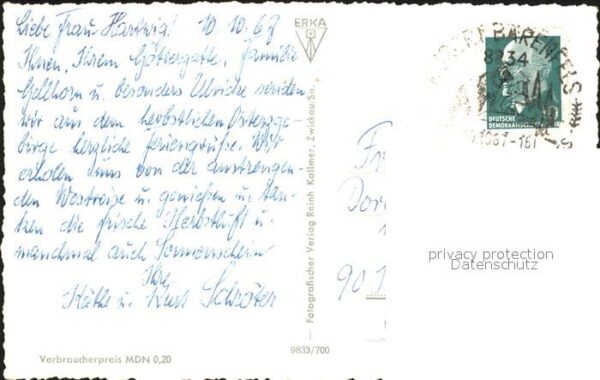 Liebe Frau Hartwig! 10.10.67
Ihnen, Ihrem Göttergatte, Familie
Gellhorn u. besonders Ulrike senden
wir aus dem herbstlichen Osterzge-
birge herzliche Feriengrüße. Wir
erholen uns von der anstrengen-
den Westreise u. genießen u. tan-
ken die frische Herbstluft u.
manchmal auch Sonnenschein
Ihre
Käthe u. Kurt Schröter
Verbraucherpreis MDN 0,20
ERKA
Fotografischer Verlag Reinh Kallmer, Zwickau-Sa.
9833/700
KURORT BÄRENFELS
8234
10.1967-16
DEUTSCHE
DEMOKRATISCHE
Fr
Dor
901
privacy protection
Datenschutz